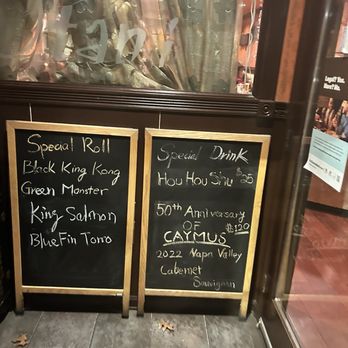 Special Roll
Black King Kong
Green Monster
King Salmon
Blue Fin Torro
Special Drink
Hou Hou Shu $25
50th Anniversary
OF $120
CAYMUS
2022 Napa Valley
Cabernet
Sauvignon